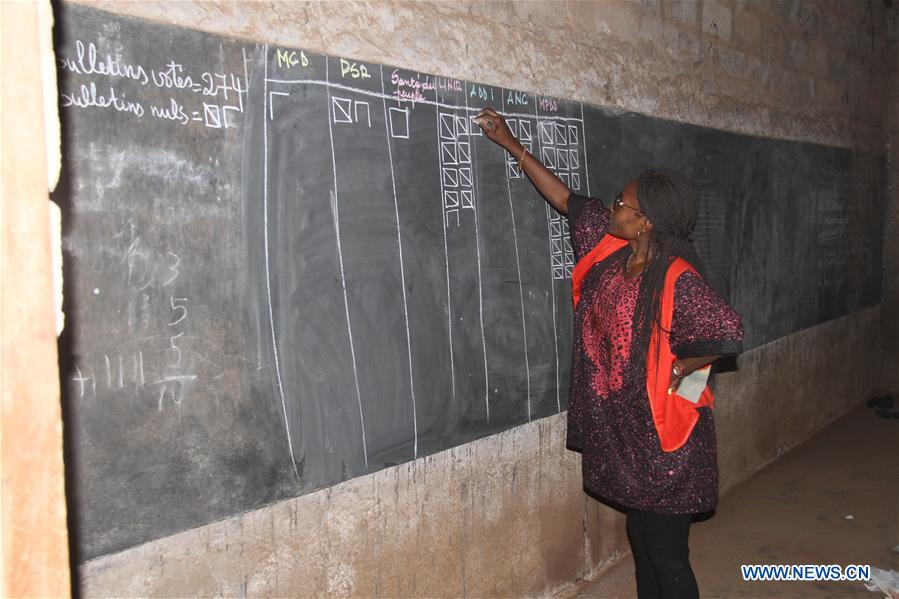 bulletins votes=274
bulletins nuls=
MCD PSR Santé du peuple UNIR ADDI ANC MPDD
3
5
5
WWW.NEWS.CN